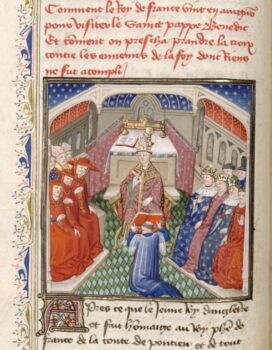 Comment le Roy de france vint en auignon
pour visiter le saint pappe Benedic
Et coment on prescha prandre la croix
contre les ennemis de la foy dont riens
ne fut acompli
Apres ce que le Jeune roy dangleterre
et fait hommaige au Roy phe de
france de la conte de pontieu et de tout